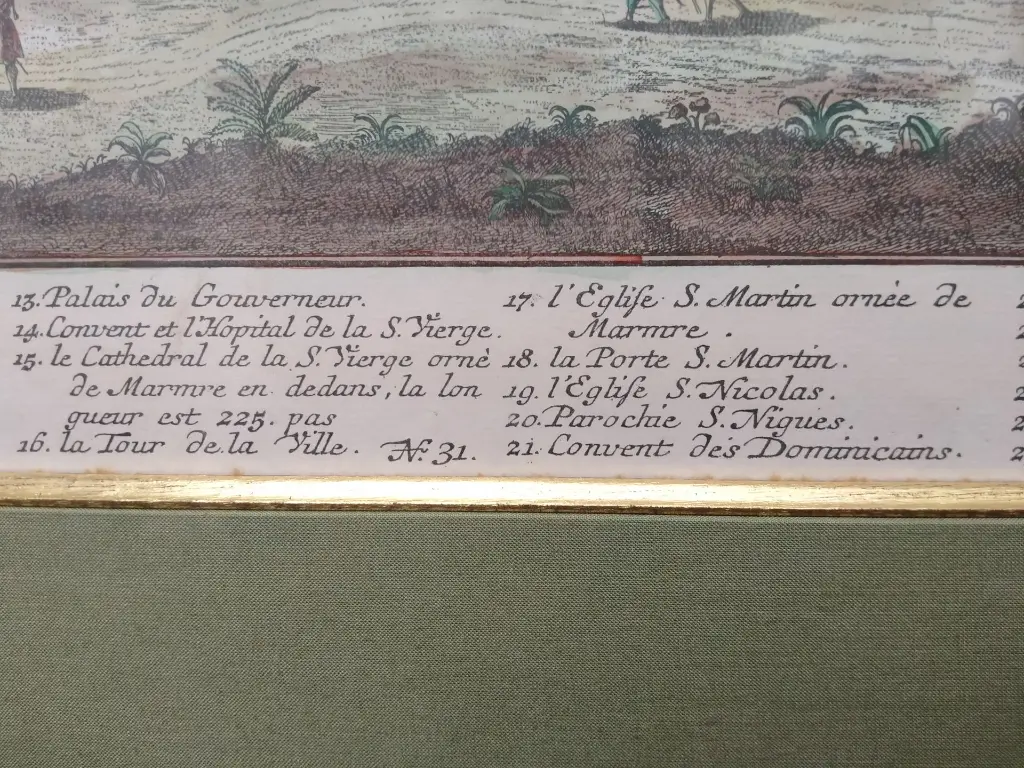 13. Palais du Gouverneur.
14. Convent et l'Hopital de la S. Vierge.
15. le Cathedral de la S. Vierge ornè
de Marmre en dedans, la lon
gueur est 225. pas
16. la Tour de la Ville. No. 31.
17. l'Eglise S. Martin ornée de
Marmre.
18. la Porte S. Martin.
19. l'Eglise S. Nicolas.
20. Parochie S. Nigues.
21. Convent des Dominicains.